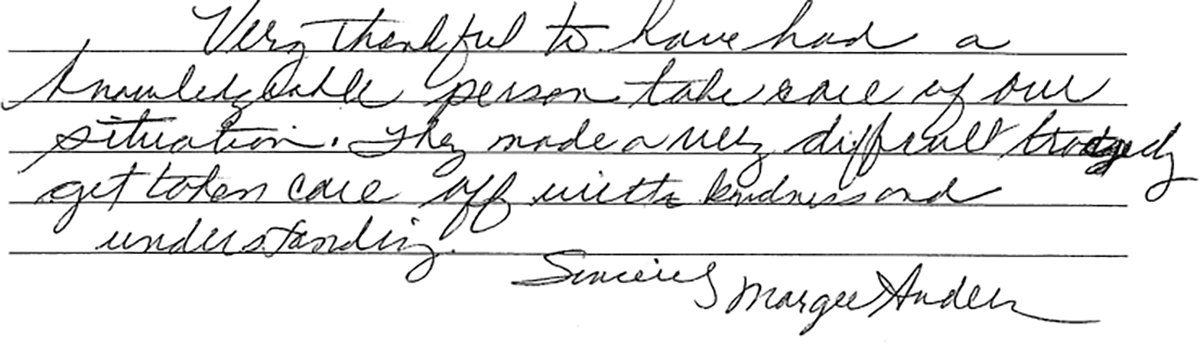 Very thankful to have had a
knowledgable person take care of our
situation. They made a very difficult tragedy
get taken care off with kindness and
understanding.
Sincerely Margee Anders